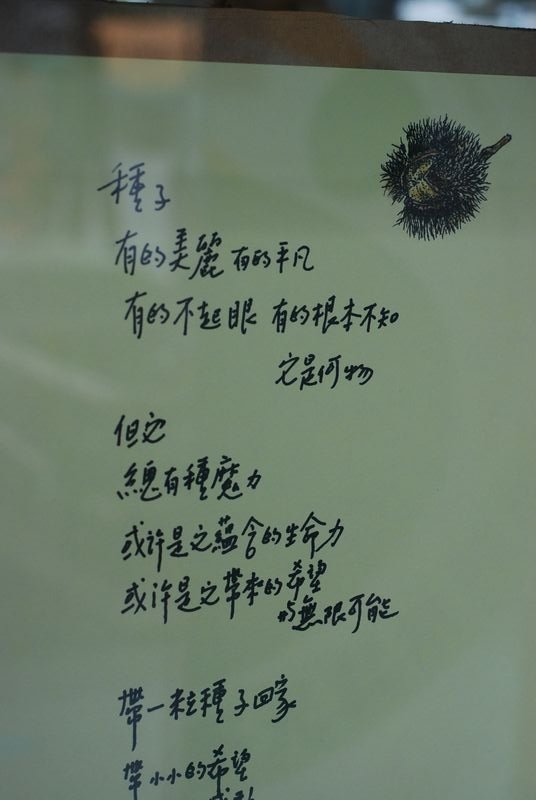 種子
有的美麗 有的平凡
有的不起眼 有的根本不知
它是何物
但它
總有種魔力
或許是它蘊含的生命力
或許是它帶來的希望
與無限可能
帶一粒種子回家
帶小小的希望